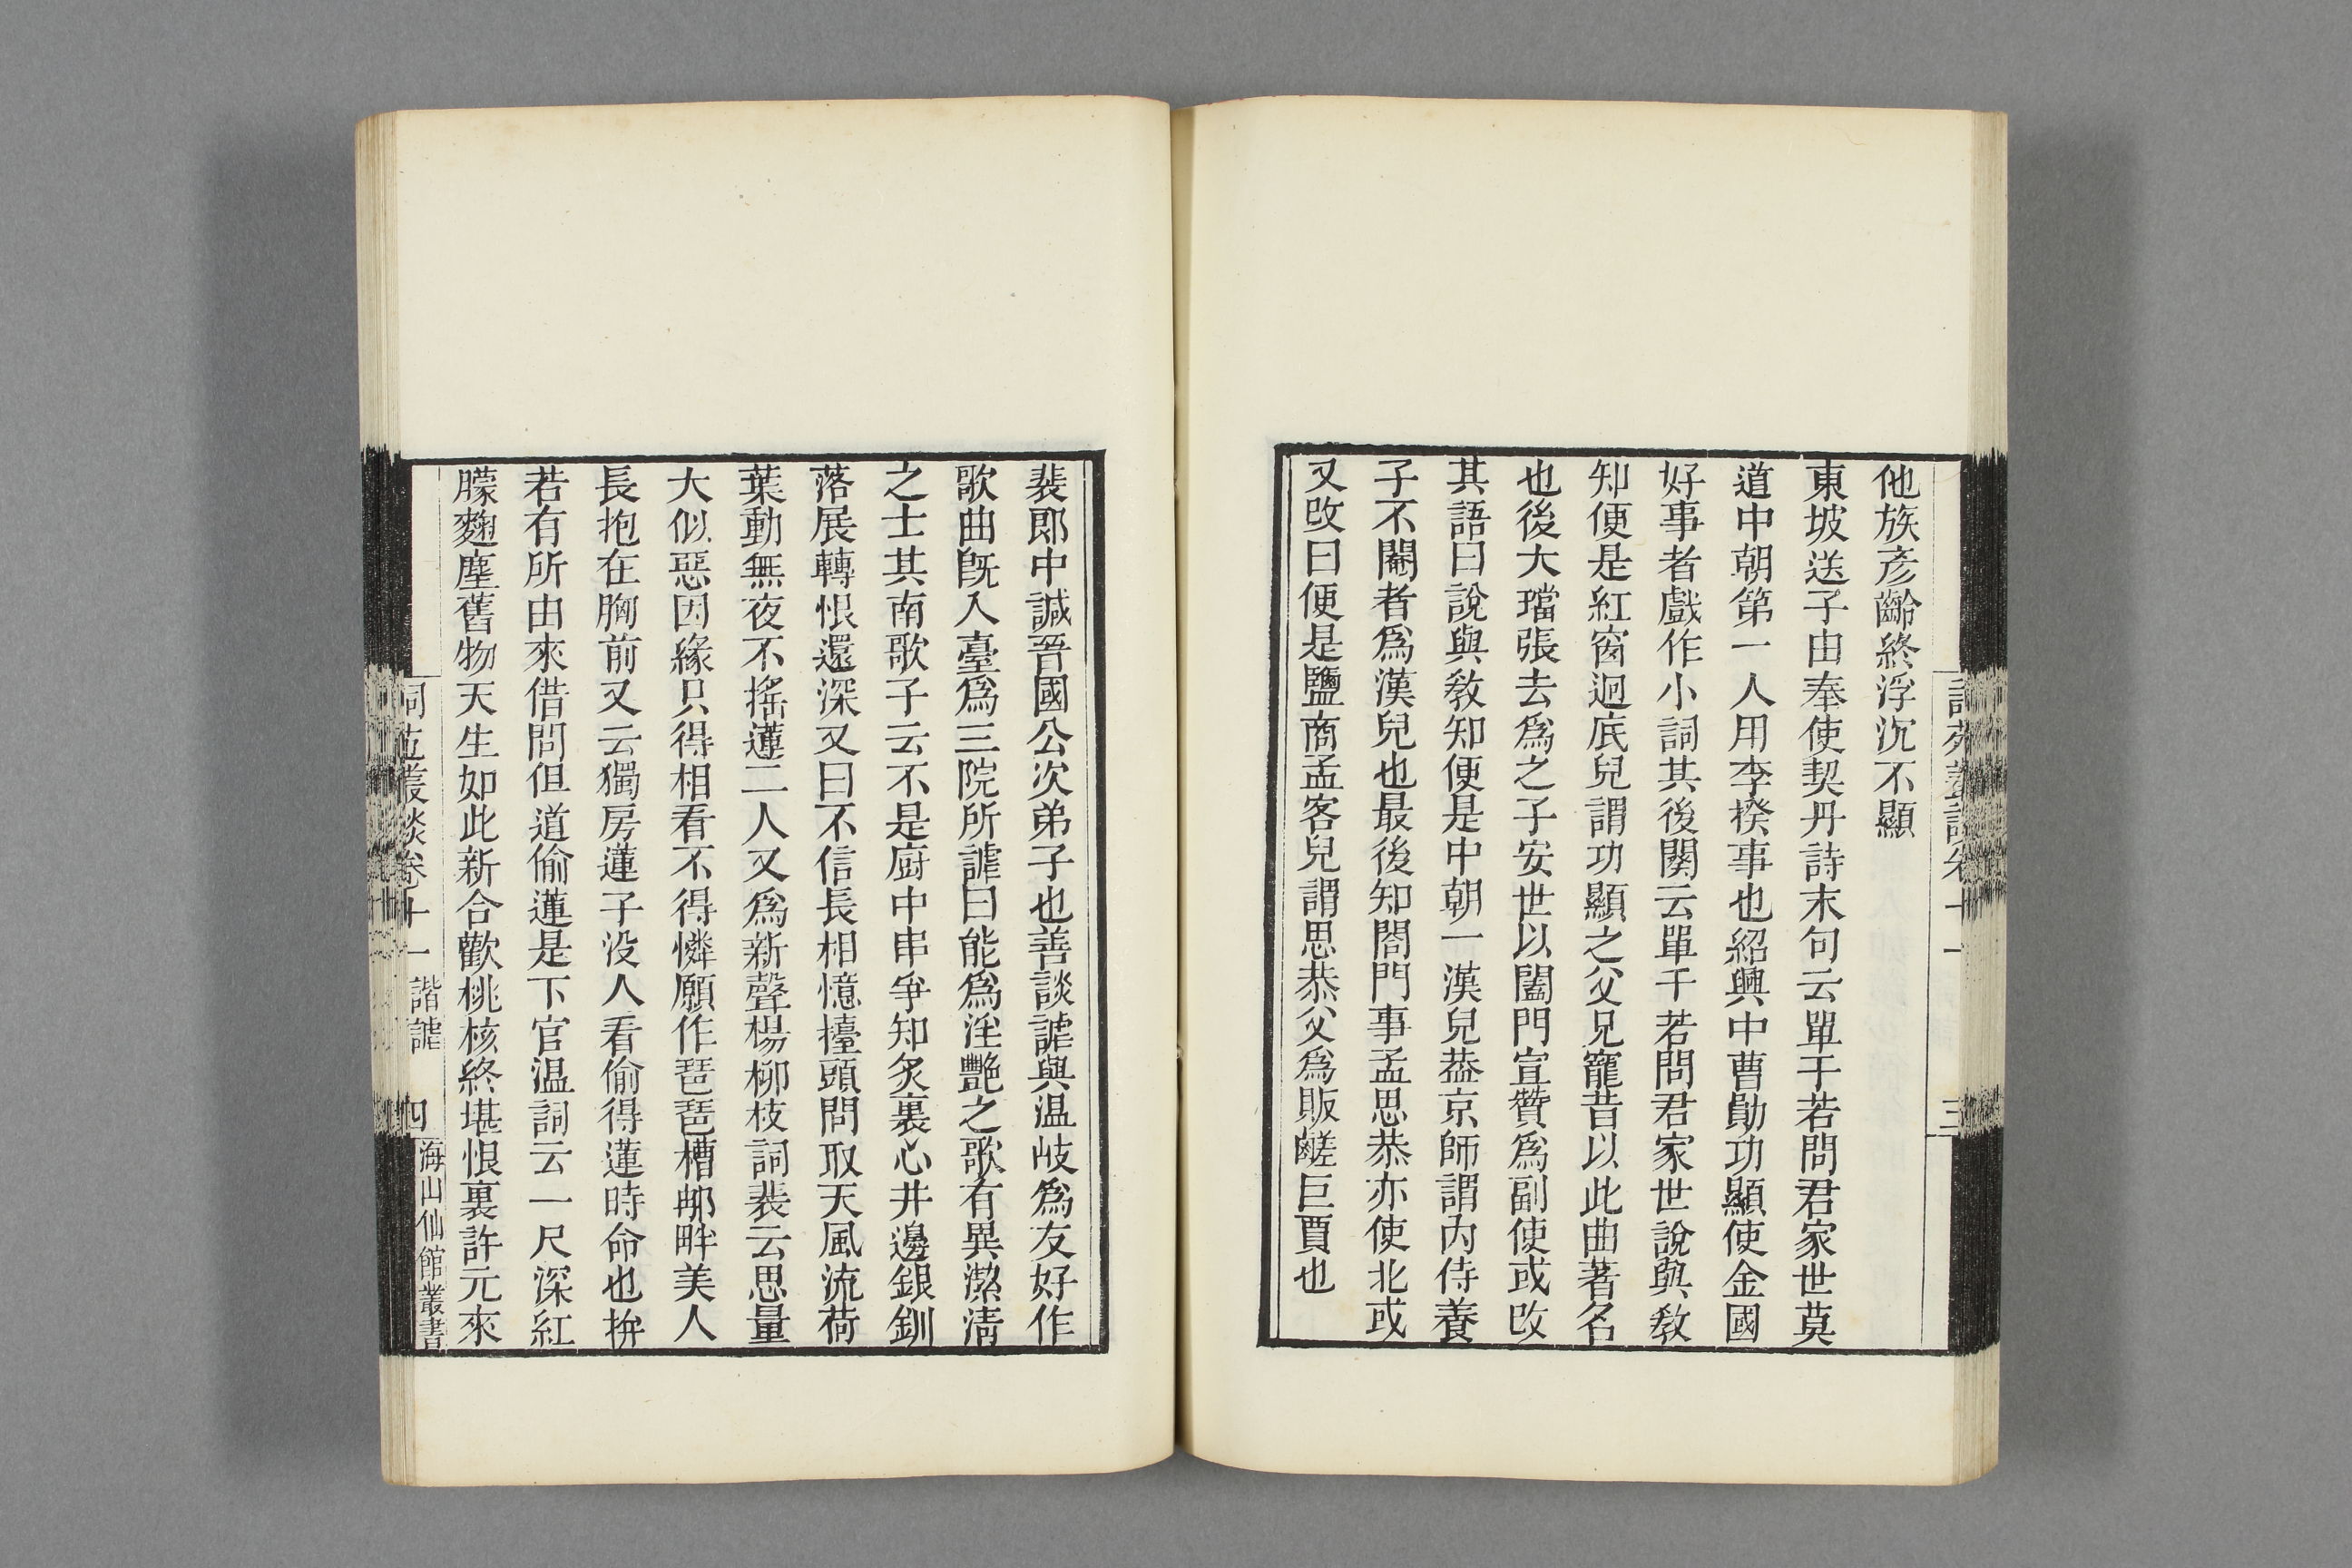 他族彥齡終浮沉不顯
東坡送子由奉使契丹詩末句云單于若問君家世莫
道中朝第一人用李揆事也紹興中曹勛功顯使金國
好事者戲作小詞其後闋云單于若問君家世說與敎
知便是紅窗迥底兒謂功顯之父兄寵昔以此曲著名
也後大璫張去爲之子安世以閤門宣贊爲副使或改
其語曰說與敎知便是中朝一漢兒葢京師謂內侍養
子不閹者爲漢兒也最後知閤門事孟思恭亦使北或
又改曰便是鹽商孟客兒謂思恭父爲販鹺巨賈也
三
裴郎中諴晉國公次弟子也善談謔與温岐爲友好作
歌曲旣入臺爲三院所謔曰能爲淫艷之歌有異潔淸
之士其南歌子云不是廚中串爭知炙裏心井邊銀釧
落展轉恨還深又曰不信長相憶擡頭問取天風流荷
葉動無夜不搖蓮二人又爲新聲楊柳枝詞裴云思量
大似惡因緣只得相看不得憐願作琵琶槽郍畔美人
長抱在胸前又云獨房蓮子没人看偷得蓮時命也拚
若有所由來借問但道偷蓮是下官温詞云一尺深紅
朦麴塵舊物天生如此新合歡桃核終堪恨裏許元來
詞苑叢談卷十一 諧謔 四 海山仙館叢書